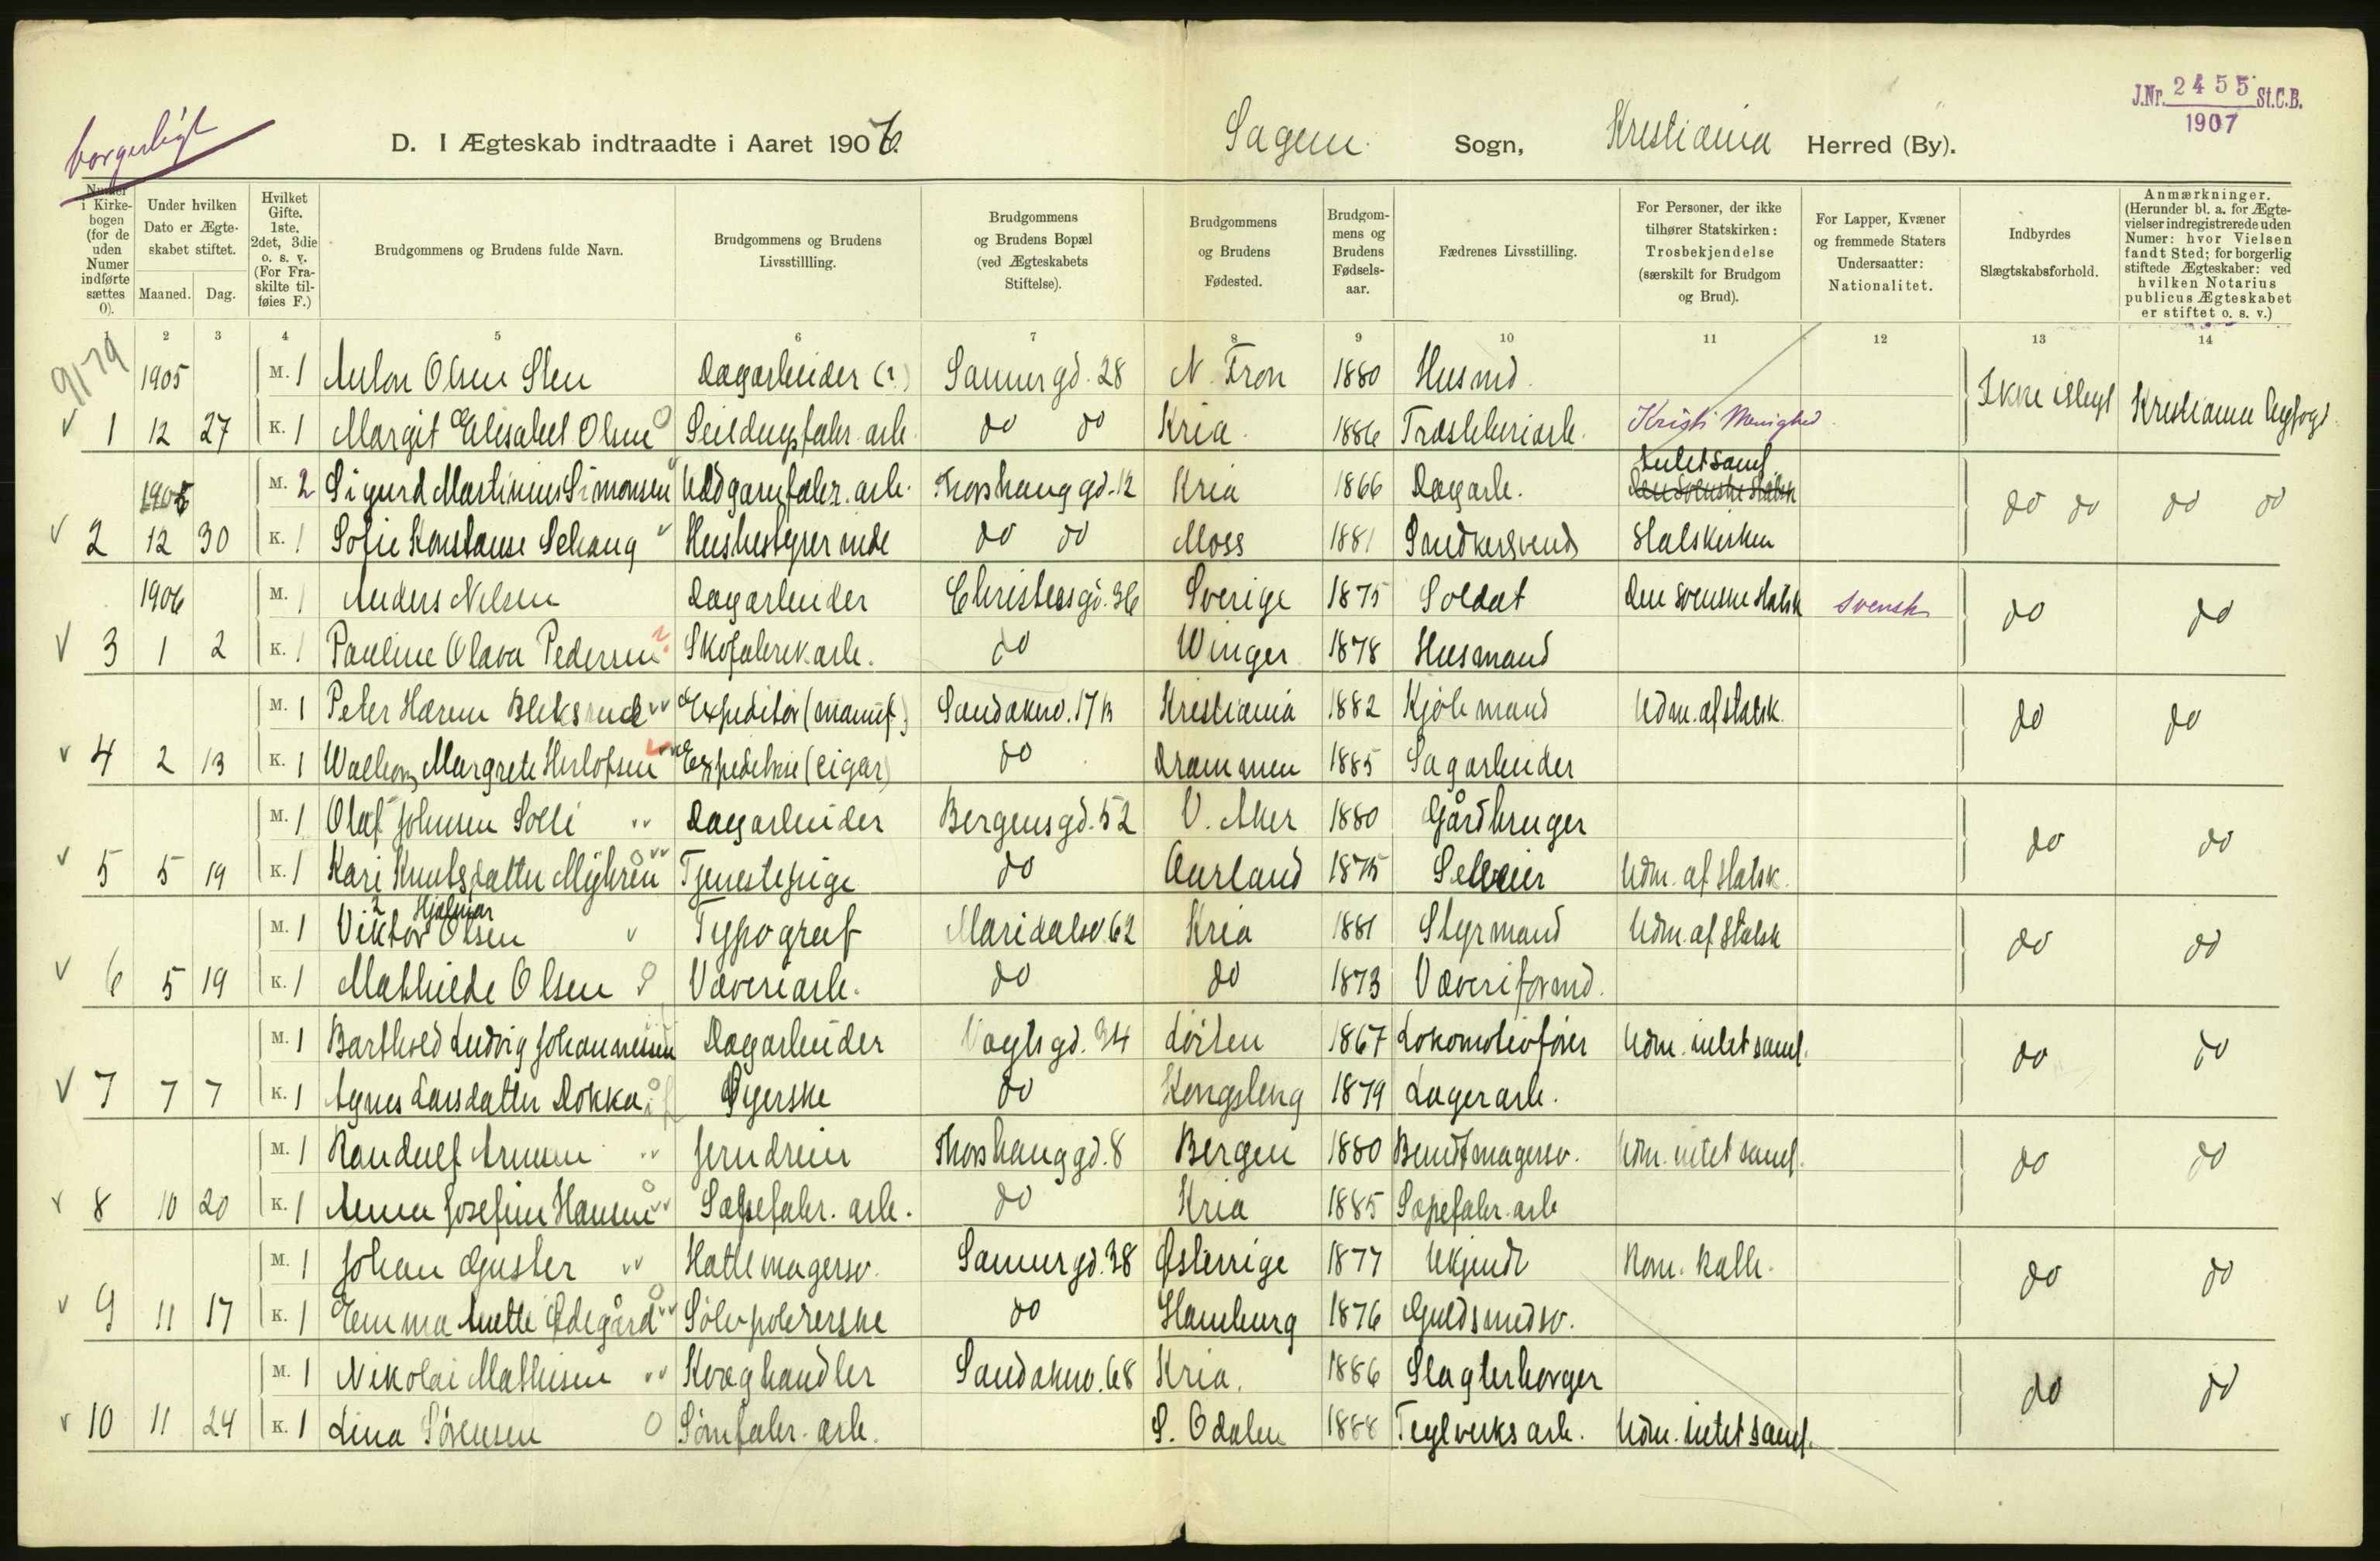 borgerligt
D. I Ægteskab indtraadte i Aaret 1906. Sagene Sogn, Kristiania Herred (By).
J.Nr. 2455 St.C.B.
1907
Numer i Kirkebogen (for de uden Numer indførte sættes 0).
Under hvilken Dato er Ægteskabet stiftet.
Maaned. Dag.
Hvilket Gifte. 1ste. 2det, 3die o. s. v. (For Fraskilte tilføies F.)
Brudgommens og Brudens fulde Navn.
Brudgommens og Brudens Livsstillling.
Brudgommens og Brudens Bopæl (ved Ægteskabets Stiftelse).
Brudgommens og Brudens Fødested.
Brudgommens og Brudens Fødselsaar.
Fædrenes Livsstilling.
For Personer, der ikke tilhører Statskirken: Trosbekjendelse (særskilt for Brudgom og Brud).
For Lapper, Kvæner og fremmede Staters Undersaatter: Nationalitet.
Indbyrdes Slægtskabsforhold.
Anmærkninger. (Herunder bl. a. for Ægtevielser indregistrerede uden Numer: hvor Vielsen fandt Sted; for borgerlig stiftede Ægteskaber: ved hvilken Notarius publicus Ægteskabet er stiftet o. s. v.)
1 2 3 4 5 6 7 8 9 10 11 12 13 14
9179
1905 M. 1 Anton Olsen Sten Dagarbeider (?) Sannergd. 28 N. Fron 1880 Husmd.
1 12 27 K. 1 Margit Elisabet Olsen Seildugsfabr. arb. do do Kria. 1886 Træsliberiarb. Kristi Menighed Ikke slegt Kristiania byfogd
1905 M. 2 Sigurd Martinius Simonsen Uldgarnfabr. arb. Thorshauggd. 12 Kria 1866 Dagarb. Intet samf. Den svenske statsk
2 12 30 K. 1 Sofie Konstanse Schaug Husbestyrerinde do do Moss 1881 Snedkersvend Statskirken do do do do
1906 M. 1 Anders Nilsen Dagarbeider Christiesgd. 36 Sverige 1875 Soldat Den svenske statsk svensk
3 1 2 K. 1 Pauline Olava Pedersen Skofabrik.arb. do Winger 1878 Husmand do do
M. 1 Peter Harem Bleksrud Expeditør (manuf.) Sandakerv. 17 B Kristiania 1882 Kjøbmand Udm. af statsk.
4 2 13 K. 1 Walborg Margrete Herlofsen Expeditrise (cigar) do Drammen 1885 Sagarbeider do do
M. 1 Olaf Johnsen Solli Dagarbeider Bergensgd. 52 V. Aker 1880 Gårdbruger
5 5 19 K. 1 Kari Knutsdatter Myhren Tjenestepige do Aurland 1875 Selveier Udm. af statsk. do do
M. 1 Viktor Hjalmar Olsen Typograf Maridalsv. 62 Kria 1881 Styrmand Udm. af statsk
6 5 19 K. 1 Mathilde Olsen Væveriarb. do do 1873 Væveriformd. do do
M. 1 Barthold Ludvig Johannesen Dagarbeider Vogtsgd. 34 Løiten 1867 Lokomotivfører Udm. intet samf.
7 7 7 K. 1 Agnes Larsdatter Dokka Syerske do Kongsberg 1879 Lagerarb. do do
M. 1 Randulf Arnesen Jerndreier Thorshauggd. 8 Bergen 1880 Bundtmagersv. Udm. intet samf.
8 10 20 K. 1 Anna Josefine Hansen Sæpefabr. arb. do Kria 1885 Sæpefabr. arb do do
M. 1 Johan Guster Hattemagersv. Sannergd. 38 Østerrige 1877 Ukjendt Rom. kath.
9 11 17 K. 1 Emma Anette Ødegård Sølvpolererske do Hamburg 1876 Guldsmedsv. do do
M. 1 Nikolai Mathisen Kvæghandler Sandakerv. 68 Kria. 1886 Slagterborger
10 11 24 K. 1 Lina Sørensen Sømfabr. arb. S. Odalen 1888 Teglverksarb. Udm. intet samf. do do